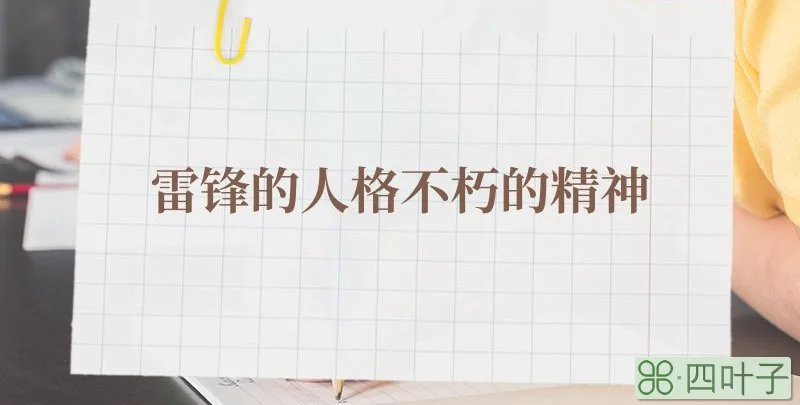 雷锋的人格不朽的精神
四叶子